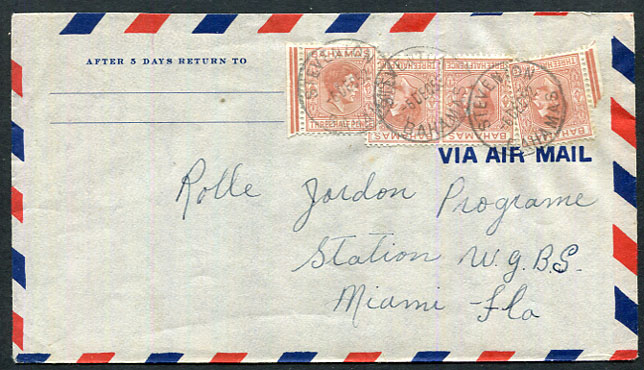 AFTER 5 DAYS RETURN TO
BAHAMAS
THREE HALF PENCE
BAHAMAS
BAHAMAS
BAHAMAS
STEVENTON
BAHAMAS
STEVENTON
BAHAMAS
VIA AIR MAIL
Rolle Jordon Programe
Station W.G.B.S.
Miami Fla